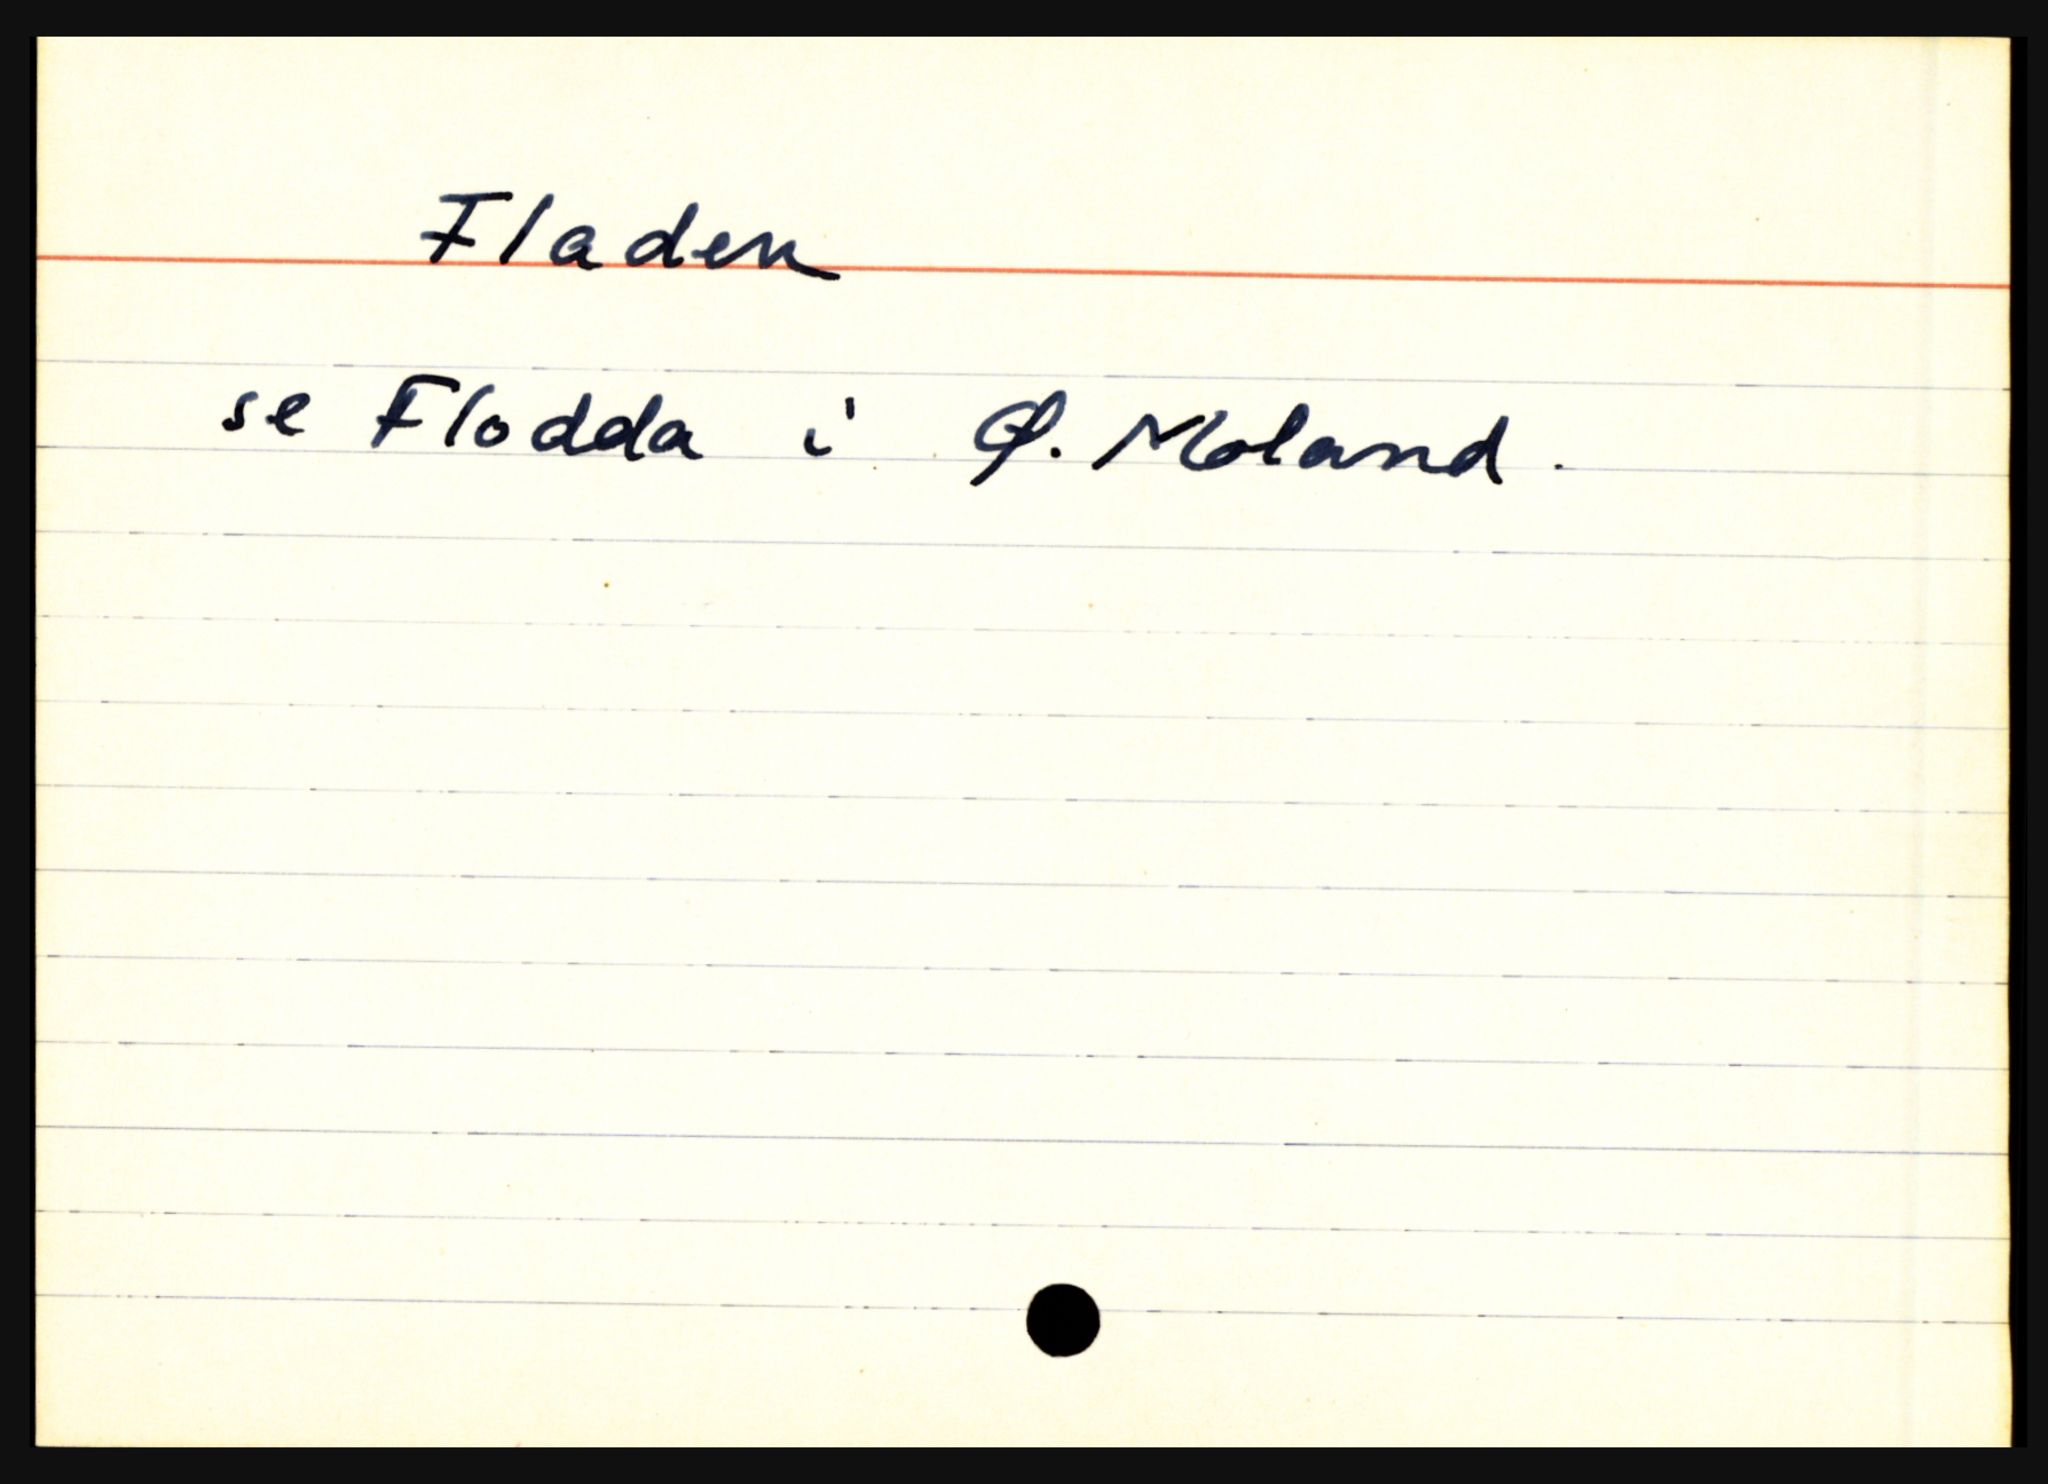 Fladen
se Flodda i Ø. Moland.